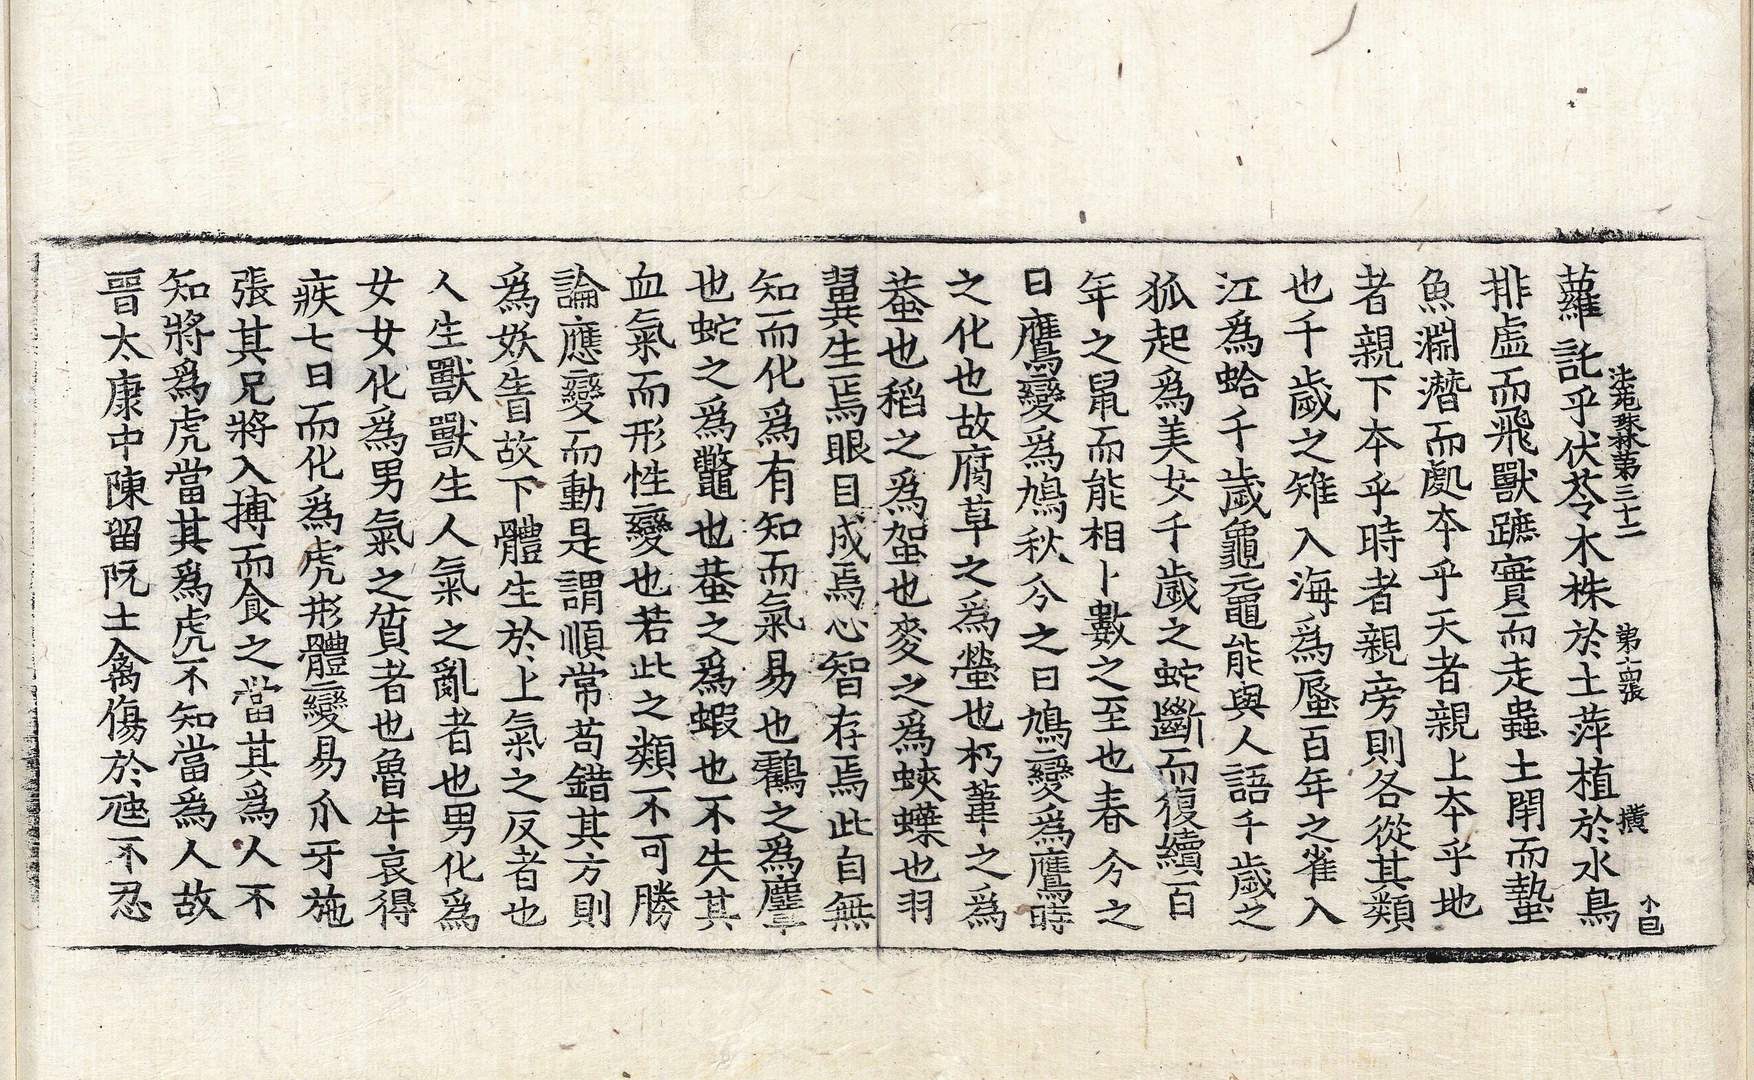 法苑珠林第三十二 第十四張 横 个巳
蘿託乎伏苓木株於土萍植於水鳥
排虛而飛獸蹠實而走蟲土閉而蟄
魚淵潛而處本乎天者親上本乎地
者親下本乎時者親旁則各從其類
也千歲之雉入海爲蜃百年之雀入
江爲蛤千歲龜黿能與人語千歲之
狐起爲美女千歲之蛇斷而復續百
年之鼠而能相卜數之至也春分之
日鷹變爲鳩秋分之日鳩變爲鷹時
之化也故腐草之爲螢也朽葦之爲
蛬也稻之爲䖪也麥之爲蛺蝶也羽
翼生焉眼目成焉心智存焉此自無
知而化爲有知而氣易也鸖之爲麞
也蛇之爲鼈也蛬之爲蝦也不失其
血氣而形性變也若此之類不可勝
論應變而動是謂順常苟錯其方則
爲妖眚故下體生於上氣之反者也
人生獸獸生人氣之亂者也男化爲
女女化爲男氣之質者也魯牛哀得
疾七日而化爲虎形體變易爪牙施
張其兄將入搏而食之當其爲人不
知將爲虎當其爲虎不知當爲人故
晉太康中陳留阮士禽傷於虺不忍